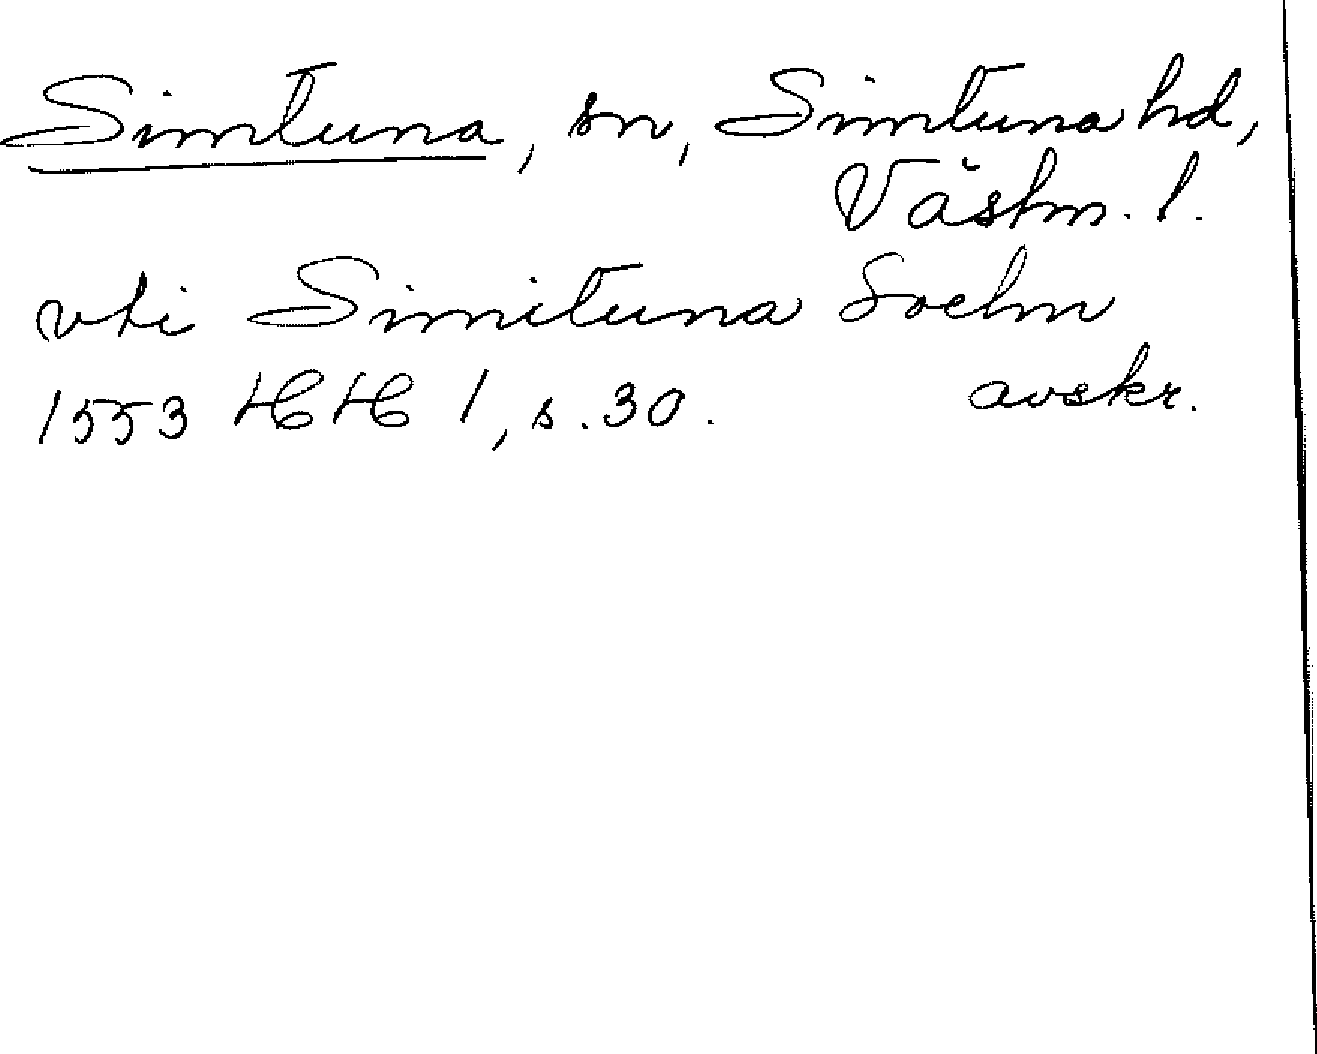 Simtuna, sn, Simtuna hd,
Västm. l.
vti Simituna Sochn
1553 HH 1, s. 30. avskr.